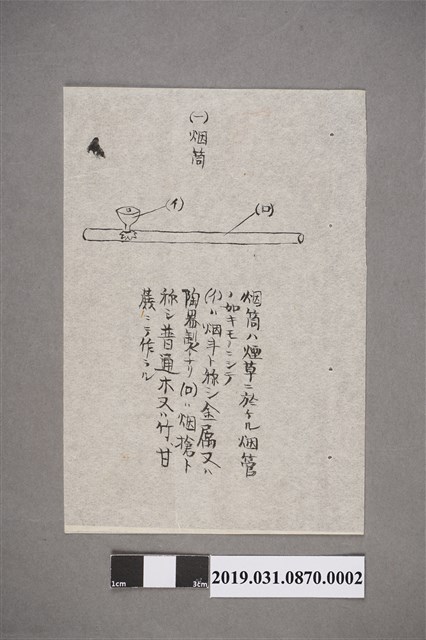 (一)烟筒
(イ)
(ロ)
烟筒ハ煙草ニ於ケル烟管
ノ如キモノニシテ
(イ)ハ烟斗ト称シ金属又ハ
陶器製ナリ(ロ)ハ烟槍ト
称シ普通木又ハ竹、甘
蔗ニテ作ラル
1cm
3cm
2019.031.0870.0002